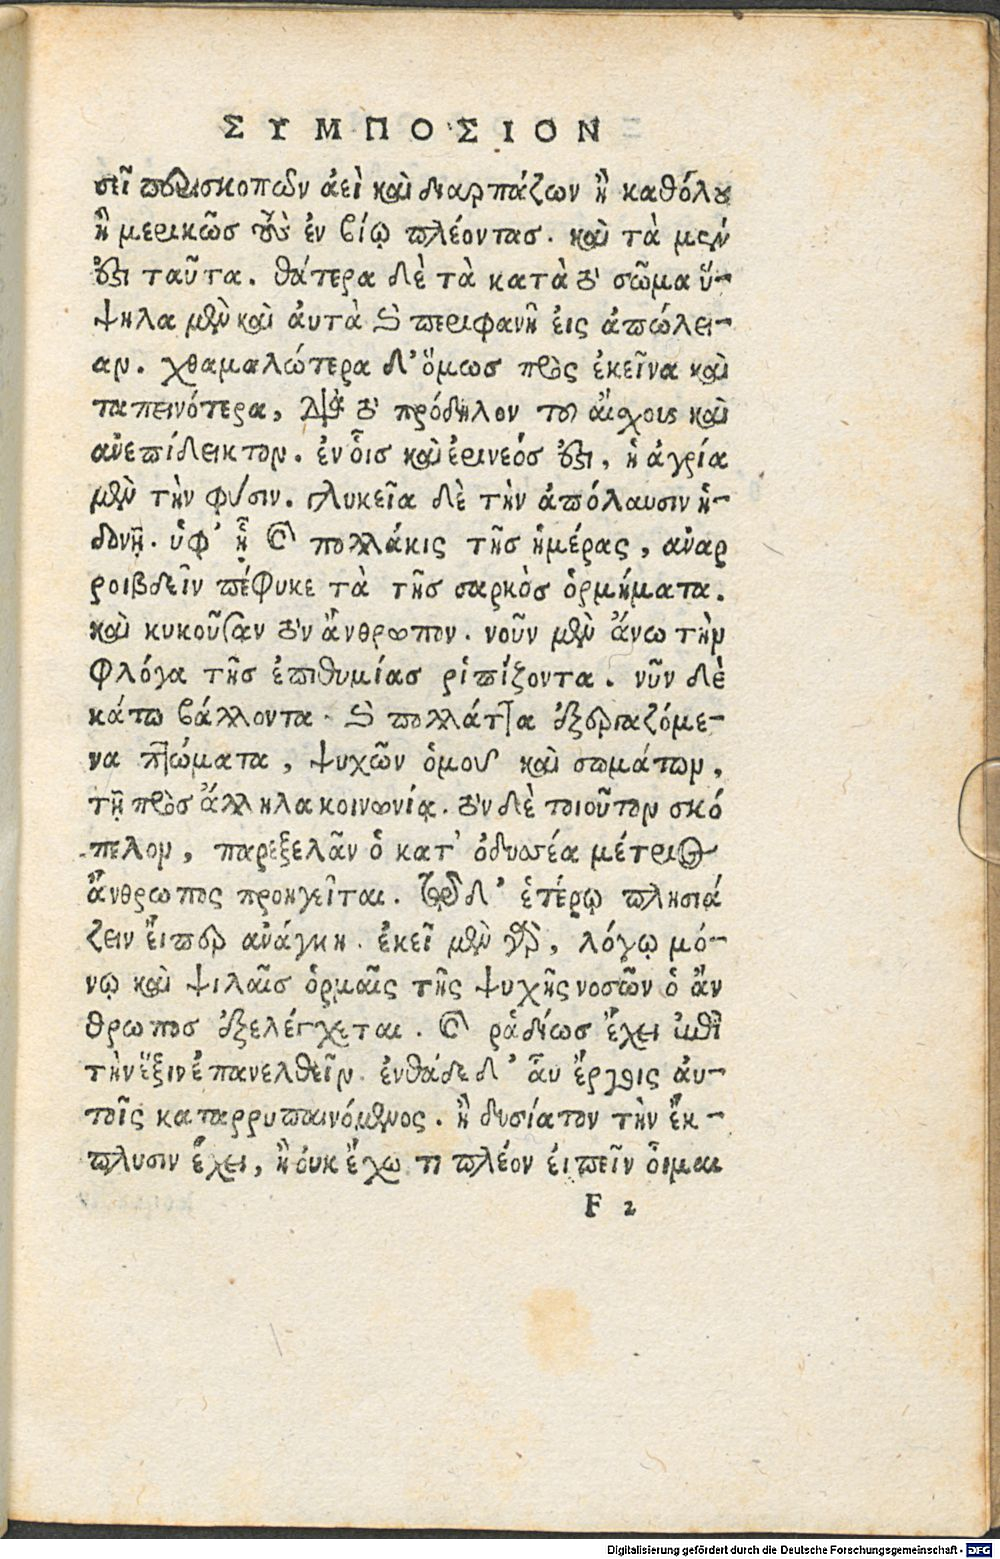 ΣΥΜΠΟΣΙΟΝ
σεῖ περισκοπῶν ἀεὶ καὶ διαρπάζων ἢ καθόλου
ἢ μερικῶσ τοὺς ἐν βίῳ πλέοντασ. καὶ τὰ μὲν
ἐστι ταῦτα. θάτερα δὲ τὰ κατὰ τὸ σῶμα ὕ-
ψηλα μὲν καὶ ἀυτὰ καὶ περιφανῆ ἐις ἀπώλει-
αν. χθαμαλώτερα δ' ὅμωσ πρὸς ἐκεῖνα καὶ
ταπεινότερα, διὰ τὸ πρόδηλον του αἴχους καὶ
ανεπίδεικτον. ἐν οἷσ καὶ ἐρινεόσ ἐστι, ἡ ἀγρία
μὲν τὴν φύσιν. γλυκεῖα δὲ τὴν ἀπόλαυσιν ἡ-
δονῆ. ὑφ' ἧ καὶ πολλάκις τῆσ ἡμέρας, αναρ
ροιβδεῖν πέφυκε τὰ τῆσ σαρκὸσ ὁρμήματα.
καὶ κυκοῦσαν τὸν ἄνθρωπον. νοῦν μὲν ἄνω τὴν
φλόγα τῆσ ἐπιθυμίασ ῥιπίζοντα. νῦν δὲ
κάτω βάλλοντα. καὶ πολλάττα ἐξαρπαζόμε-
να πτώματα, ψυχῶν ὁμοῦ καὶ σωμάτων,
τῇ πρὸσ ἄλληλα κοινωνίᾳ. τὸν δὲ τοιοῦτον σκό
πελον, παρεξελᾶν ὁ κατ' ὀδυσέα μέτριος
ἄνθρωπος προηγεῖται. τῷ δ' ἑτέρῳ πλησιά
ζειν ἔιπερ ανάγκη. ἐκεῖ μὲν γὰρ, λόγῳ μό-
νῳ καὶ ψιλαῖσ ὁρμαῖς τῆς ψυχῆς νοσῶν ὁ ἄν
θρωποσ ἐξελέγχεται. καὶ ῥαδίωσ ἔχει ἐπὶ
τὴν ἕξιν ἐπανελθεῖν. ἐνθάδε δ' ἂυ ἔργοις ἀυ-
τοῖς καταρρυπαινόμενος. ἢ δυσίατον τὴν ἔκ-
πλυσιν ἔχει, ἢ ὀυκ ἔχω τι πλέον ἐιπεῖν ὅιμαι
F 2
Digitalisierung gefördert durch die Deutsche Forschungsgemeinschaft - DFG